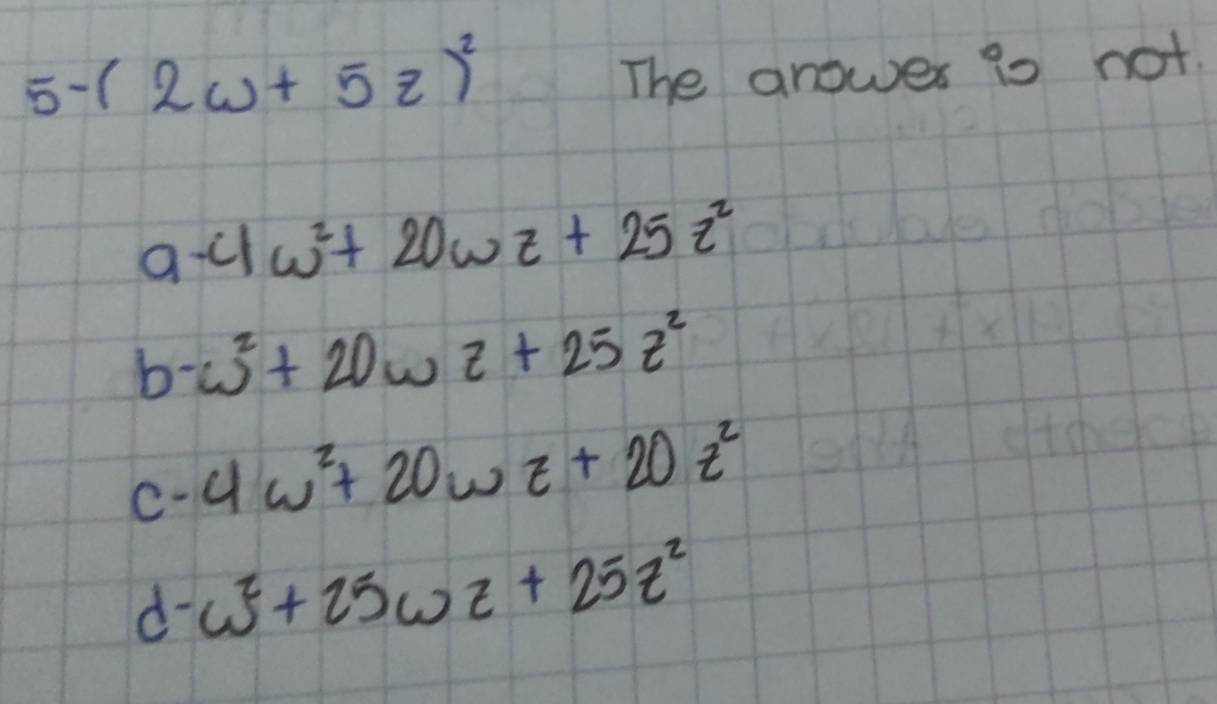 5-( 2w+ 5z)² The answer is not.
a-4w²+ 20wz + 25z²
b-w²+ 20wz + 25z²
c-4w²+ 20wz + 20z²
d-w²+25wz + 25z²